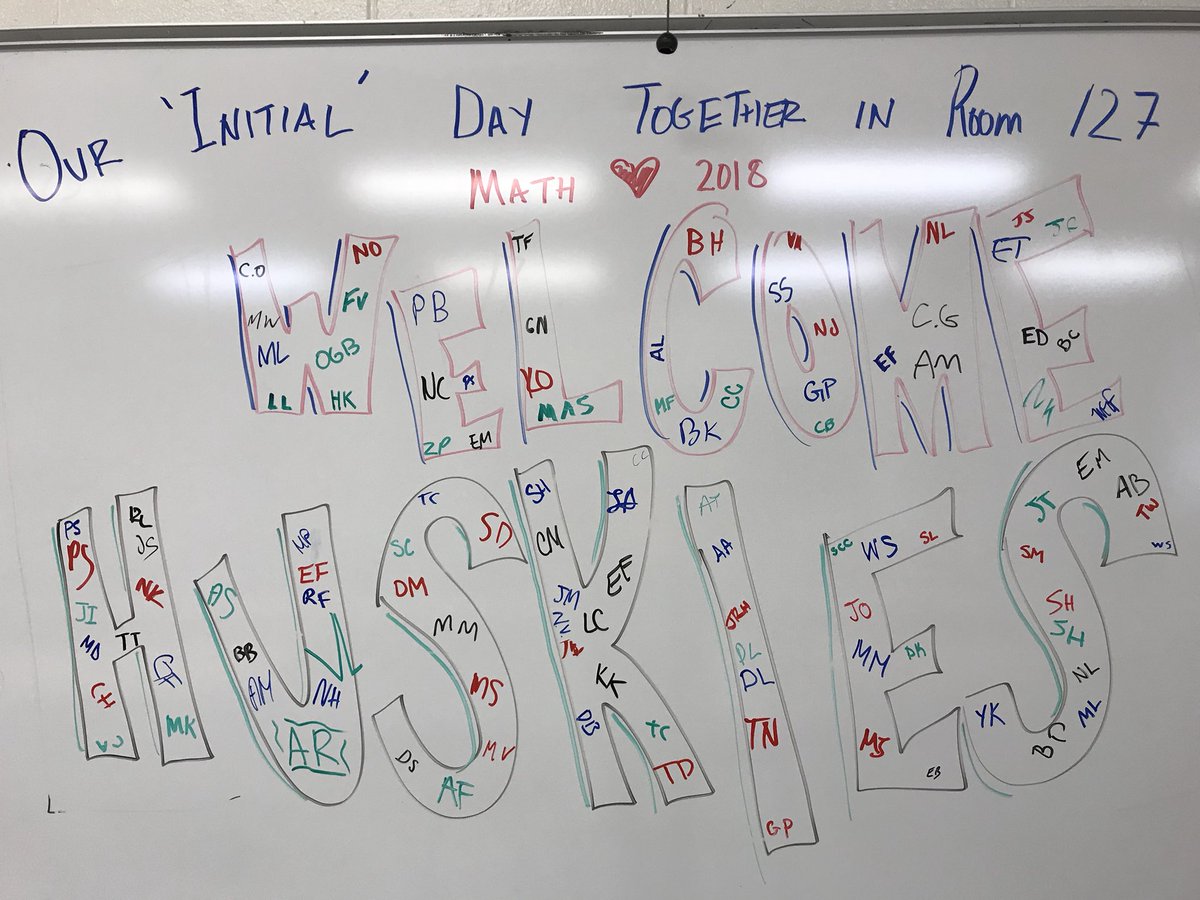 OUR 'INITIAL' DAY TOGETHER IN ROOM 127
MATH ♥ 2018
WELCOME
C.O NO
MW FV
ML OGB
LL HK
PB
NC
ZP EM
TF
GN
YO
MAS
BH
AL
MF CC
BK
SS
NJ
GP
CB
NL
C.G
EF AM
JS JC
ET
ED BC
HUSKIES
PS
PS JS
JI NK
MD TT
CH
MK
PS MP
EF
BB RF
AM NH
AR
TC
SC SD
DM
MM
MS
DS MV
AF
SH CC
CN
JM EF
LC
KK
DB TC
TD
AT
AA
JRH
DL
DL
TN
GP
SCC WS SL
JO
MM DK
MJ
EB
EM
JT AB
TW
SM WS
SH
SH
NL
YK ML